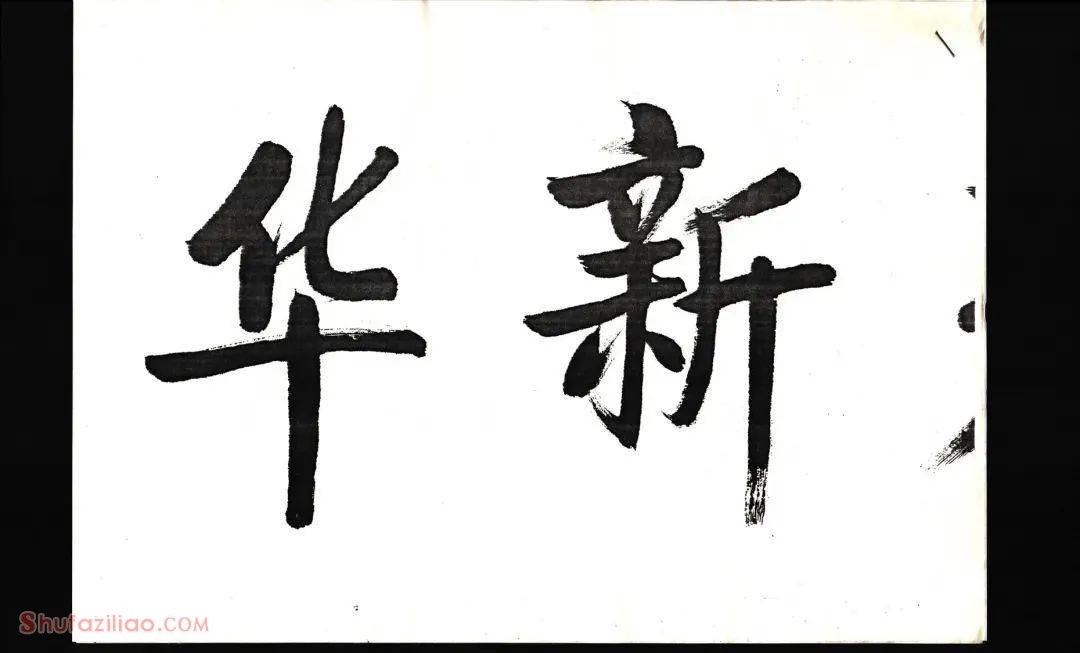 华新
Shufaziliao.com